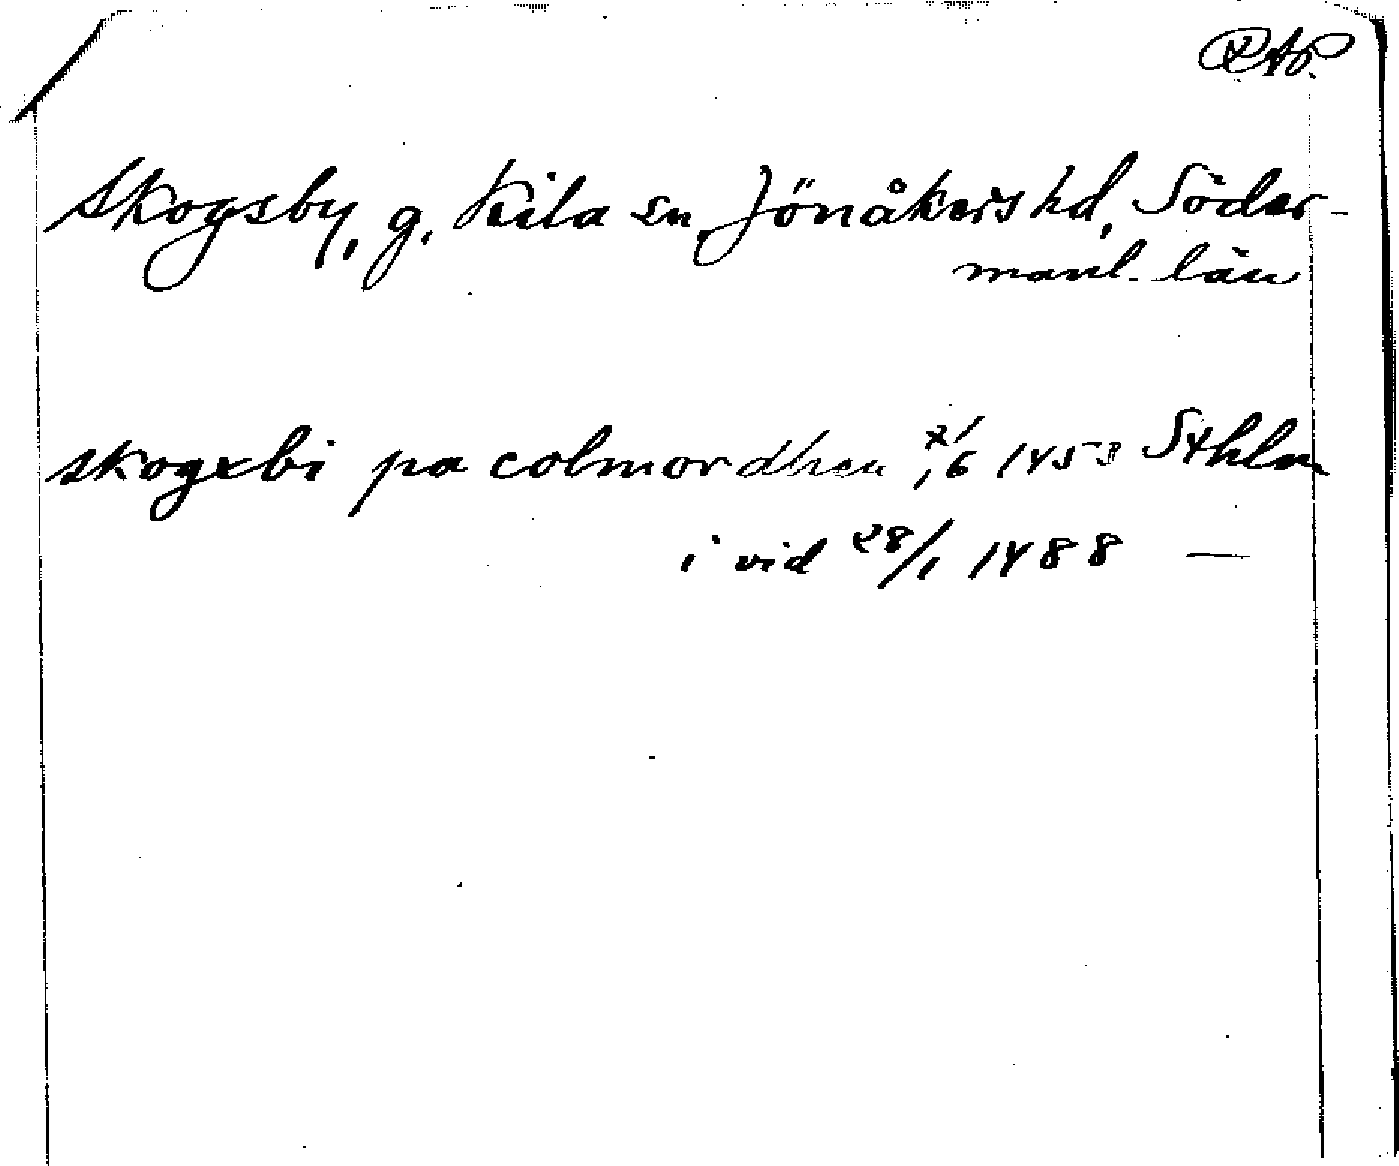 RAp.
Skogsby, g. Kila sn, Jönåkers hd, Söder-
manl. län
skogxbi pa colmordhen 21/6 1453 Sthlm
i vid 28/1 1488 —